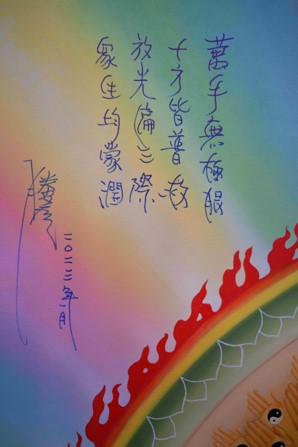 萬手無極服
十方皆普救
放光徧三際
眾生均蒙潤
二〇二三年一月